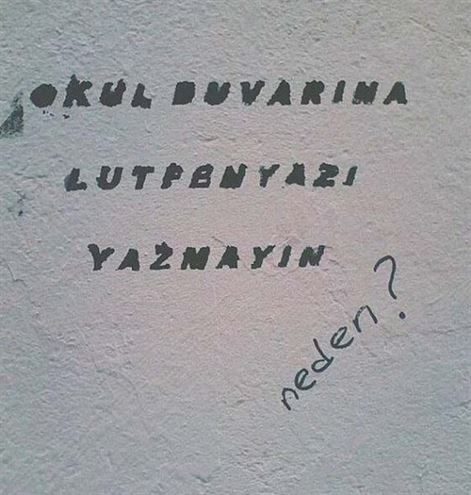 OKUL DUVARINA
LUTFENYAZI
YAZMAYIN
neden?